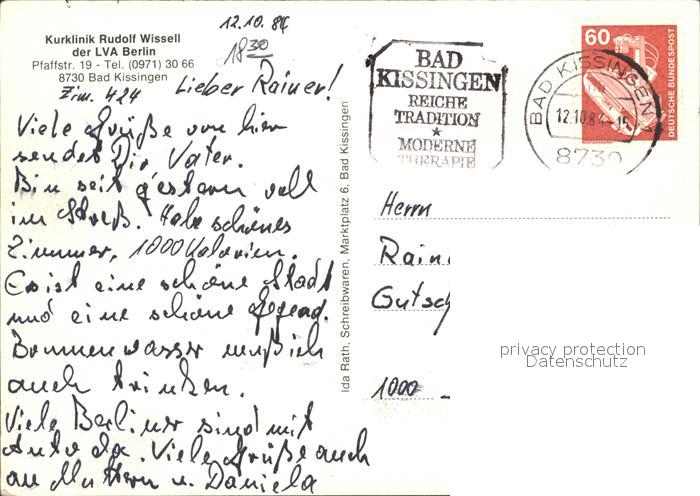 12.10.84
Kurklinik Rudolf Wissell
der LVA Berlin
Pfaffstr. 19 - Tel. (0971) 30 66
8730 Bad Kissingen
Zim. 424
18 30
Lieber Rainer!
Viele Grüße von hier
sendet Dir Vater.
Bin seit gestern voll
im Streß. Habe schönes
Zimmer, 1000 Kalorien.
Es ist eine schöne Stadt
und eine schöne Gegend.
Brunnenwasser muß ich
auch trinken.
Viele Berliner sind mit
Auto da. Viele Grüße auch
an Muttern u. Daniela
Ida Rath, Schreibwaren, Marktplatz 6, Bad Kissingen
BAD
KISSINGEN
REICHE
TRADITION
★
MODERNE
THERAPIE
BAD KISSINGEN 1
12.10.84-15
8730
60
DEUTSCHE BUNDESPOST
Herrn
Rain
Gutsch
1000
privacy protection
Datenschutz